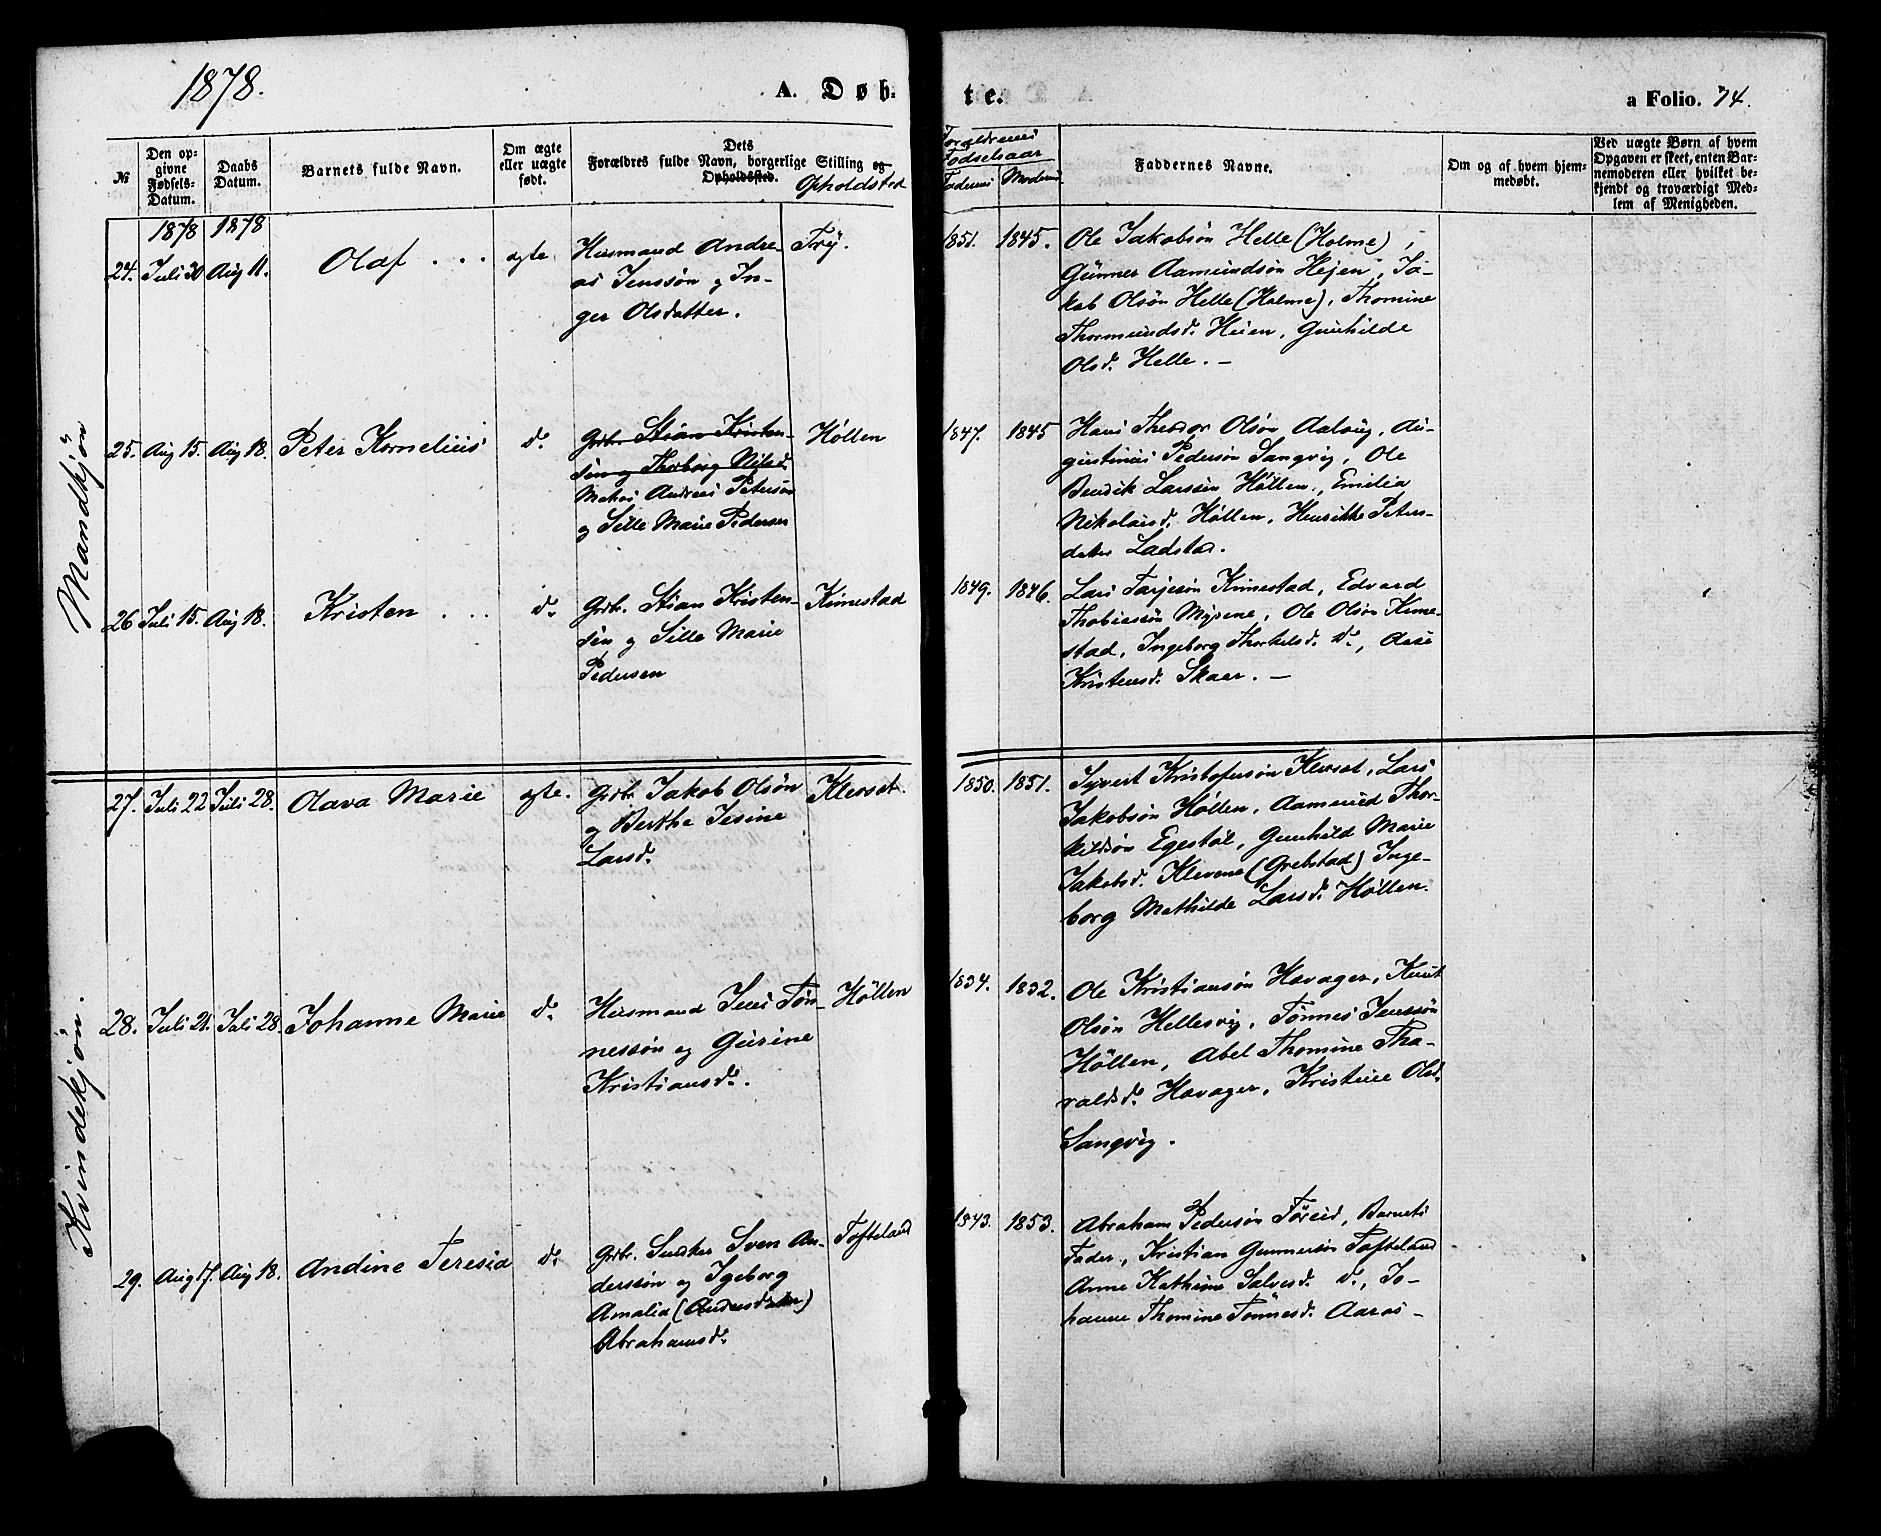 1878.
A. Døb-
te.
a Folio. 74.
№
Den op-
givne
Fødsels-
Datum.
Daabs
Datum.
Barnets fulde Navn.
Om ægte
eller uægte
født.
Dets
Forældres fulde Navn, borgerlige Stilling og
Opholdsted.
Opholdsted
Forældrenes
Fødselsaar
Faderens Moderens
Faddernes Navne.
Om og af hvem hjem-
medøbt.
Ved uægte Børn af hvem
Opgaven er skeet, enten Bar-
nemoderen eller hvilket be-
kjendt og troværdigt Med-
lem af Menigheden.
Mandkjøn
1878 1878
24. Juli 30 Aug 11. Olaf ægte Husmand Andre-
as Jenssøn og In-
ger Olsdatter.
Try.
1851. 1845.
Ole Jakobsøn Helle (Holme),
Gunner Aamundsøn Hejen, Ja-
kob Olsøn Helle (Holme), Thomine
Thormundsd. Heien, Gunhilde
Olsd. Helle. –
25. Aug 15. Aug 18. Peter Kornelius d. Grdbr. Stian Kristen-
sen og Thorborg Nilsd.
Matros Andreas Petersøn
og Sille Marie Pedersen
Høllen
1847. 1845
Hans Theodor Olsøn Aalvig, Au-
gustinius Pedersøn Langvig, Ole
Bendik Larssøn Høllen, Emilia
Nikolaisd. Høllen, Henrikke Peters-
datter Ladstad.
26 Juli 15. Aug 18. Kristen d. Grdbr. Stian Kristen-
sen og Sille Marie
Pedersen
Kimestad
1849. 1846.
Lars Tarjesøn Kimestad, Edvard
Thobiassøn Myrene, Ole Olsøn Kime-
stad, Ingeborg Thorkelsd. d., Aase
Kristensd. Skaer. –
Kvindekjøn.
27. Juli 22 Juli 28. Olava Marie ægte. Grdbr. Jakob Olsøn
og Berthe Jesine
Larsd.
Klevset.
1850. 1851.
Syvert Kristofersøn Klevset, Lars
Jakobsøn Høllen, Aamund Thor-
kildsøn Egestøl, Gunhild Marie
Jakobsd. Klevene (Grebstad) Inge-
borg Mathilde Larsd. Høllen.
28. Juli 21. Juli 28. Johanne Marie d. Husmand Jens Tøn-
nessøn og Gurine
Kristiansd.
Høllen
1834. 1832.
Ole Kristiansøn Havager, Knut
Olsøn Hellesvig, Tønnes Jenssøn
Høllen, Abel Thomine Tha-
raldsd. Havager, Kristine Olsd.
Langvig.
29. Aug 17. Aug 18. Andine Teresia d. Grdbr. Snedker Sven An-
derssøn og Igeborg
Amalia (Andersdatter)
Abrahamsd.
Tofteland
1843. 1853.
Abraham Pedersøn Føreid, Barnets
Fader, Kristian Gunnersøn Tofteland
Anne Kathrine Salvesd. d., Jo-
hanne Thomine Tønnesd. Aaros-